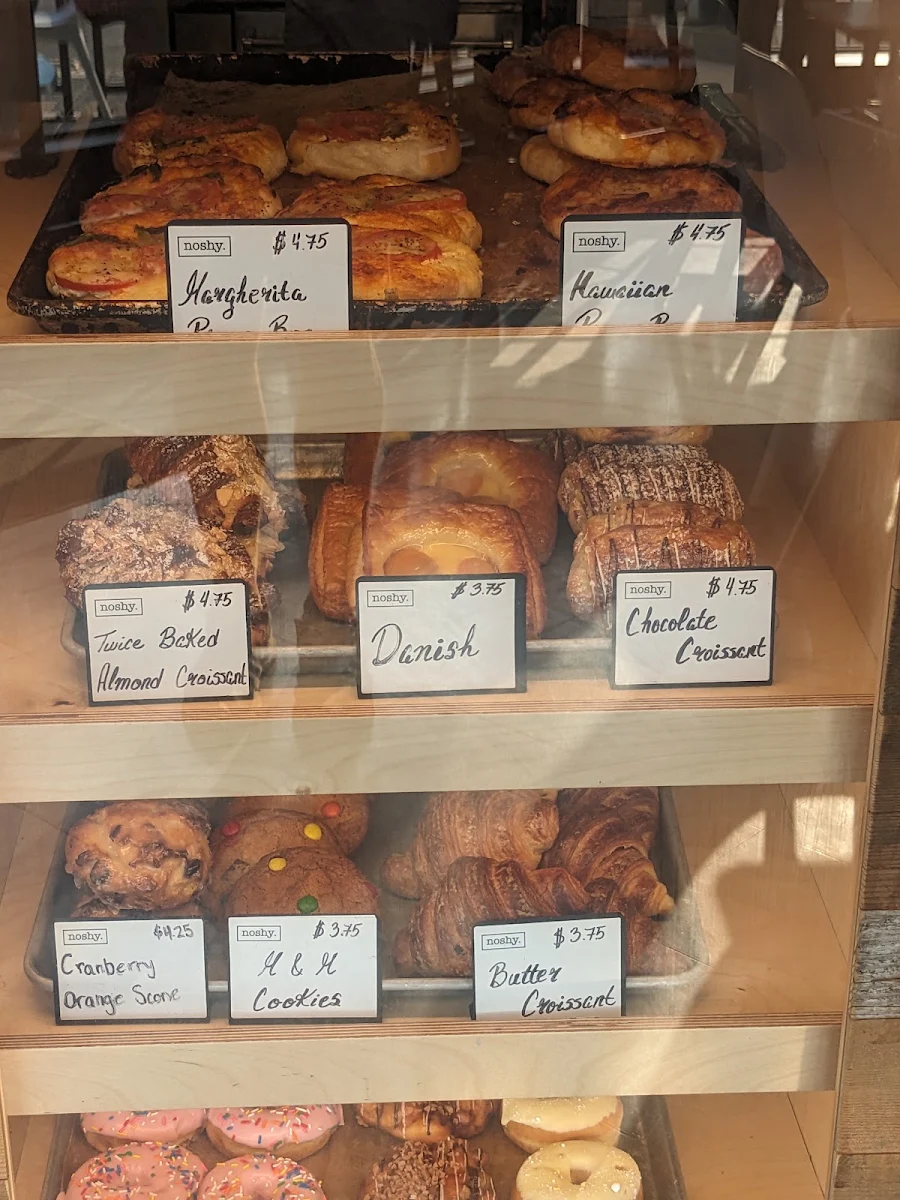 noshy.
$4.75
Margherita
noshy.
$4.75
Hawaiian
noshy.
$4.75
Twice Baked
Almond Croissant
noshy.
$3.75
Danish
noshy.
$4.75
Chocolate
Croissant
noshy.
$4.25
Cranberry
Orange Scone
noshy.
$3.75
M & M
Cookies
noshy.
$3.75
Butter
Croissant